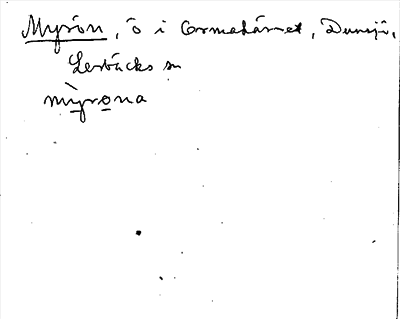 Myrön, ö i Ormahåret, Dunsjö,
Lerbäcks sn
mỳrona